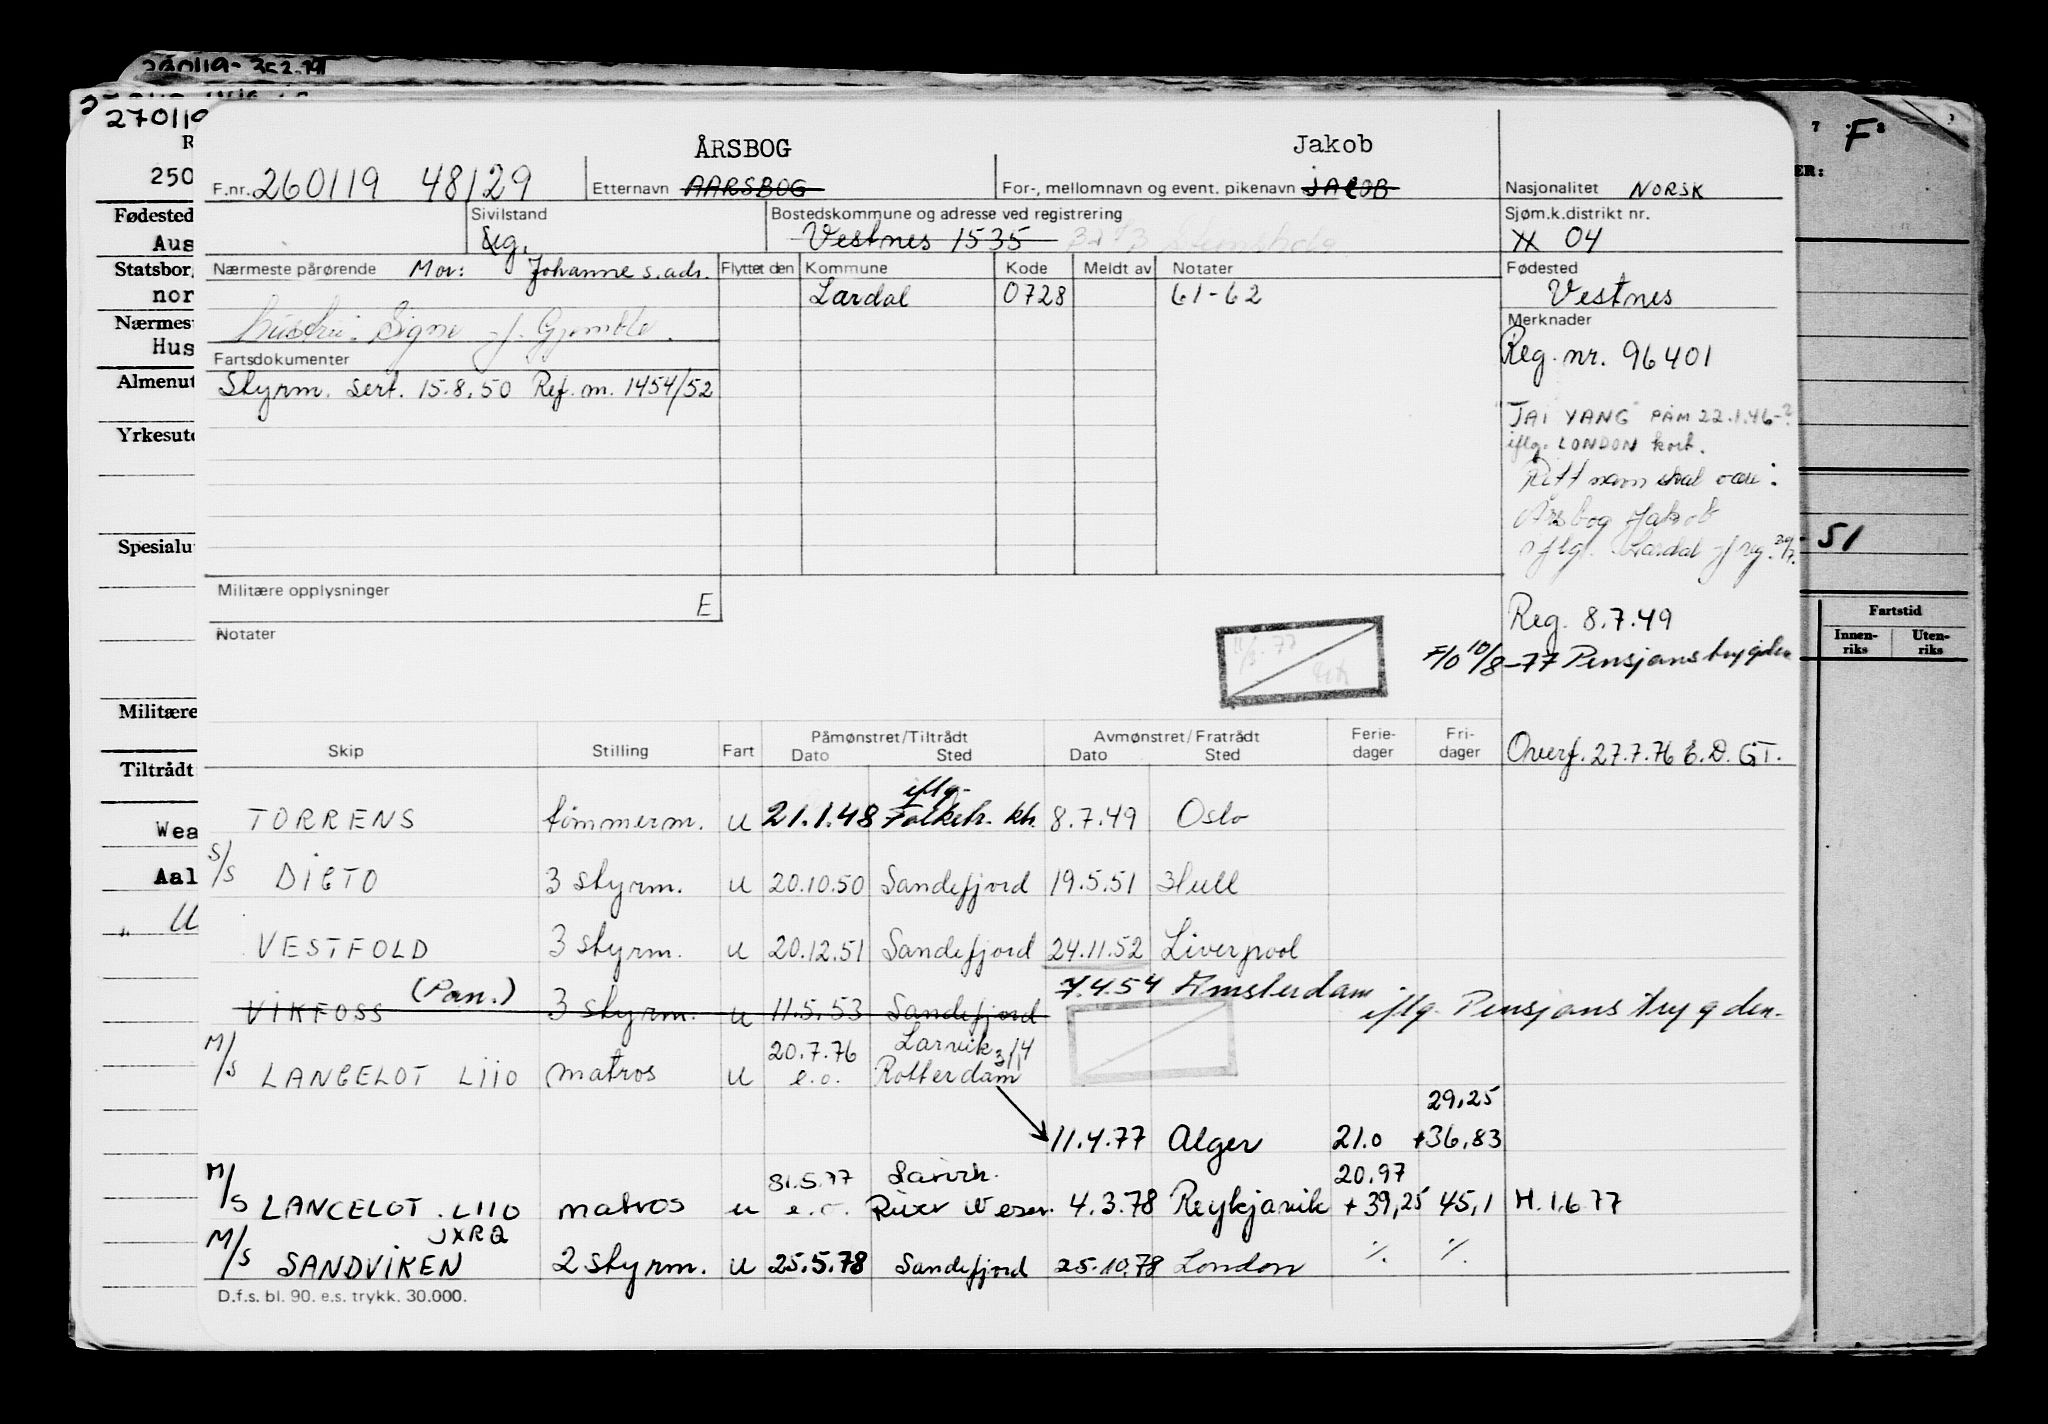 260119-352.19
270119
F
ÅRSBOG Jakob
F.nr. 260119 48129 Etternavn AARSBOG For-, mellomnavn og event. pikenavn JACOB Nasjonalitet NORSK
Sivilstand Ug. Bostedskommune og adresse ved registrering Vestnes 1535 Sjøm.k.distrikt nr. 04
Nærmeste pårørende Mor: Johanne s. adr. Flyttet den Kommune Kode Meldt av Notater Fødested
Lardal 0728 61-62 Vestnes
Signe f. Gjemble.
Merknader
Reg. nr. 96401
Fartsdokumenter
Styrm. sert. 15.8.50 Ref. m. 1454/52
"JAI YANG" PÅM 22.1.46-?
iflg. LONDON kort.
Rett navn skal være:
Årsbog Jakob
iflg. Lardal f reg.
Militære opplysninger E
Notater
Reg. 8.7.49
F/O 10/8-77 Pensjonstrygden
Skip Stilling Fart Påmønstret/Tiltrådt Avmønstret/Fratrådt Ferie- Fri-
Dato Sted Dato Sted dager dager Overf. 27.7.76 E.D. GT.
iflg.
TORRENS tømmerm. u 21.1.48 Folketr. kt. 8.7.49 Oslo
S/S DIGTO 3 styrm. u 20.10.50 Sandefjord 19.5.51 Hull
VESTFOLD 3 styrm. u 20.12.51 Sandefjord 24.11.52 Liverpool
(Pan.) 7.4.54 Amsterdam
VIKFOSS 3 styrm. u 11.5.53 Sandefjord iflg. Pensjonstrygden.
20.7.76 Larvik 3/4
M/S LANCELOT LIIO matros u e.o. Rotterdam
29,25
11.4.77 Alger 21.0 +36,83
31.5.77 Larvik. 20,97
M/S LANCELOT. LIIO matros u e.o. River Weser. 4.3.78 Reykjavik +39,25 45,1 H. 1.6.77
JXRQ
M/S SANDVIKEN 2 styrm. u 25.5.78 Sandefjord 25.10.78 London % %
D.f.s. bl. 90. e.s. trykk. 30.000.
250
Fødested
Aus
Statsbor
nor
Nærmes
Hus
Almenut
Yrkesut
Spesialu
Militære
Tiltrådt
Wea
Aal
" U
7 8
ER:
51
Fartstid
Innen- Uten-
riks riks